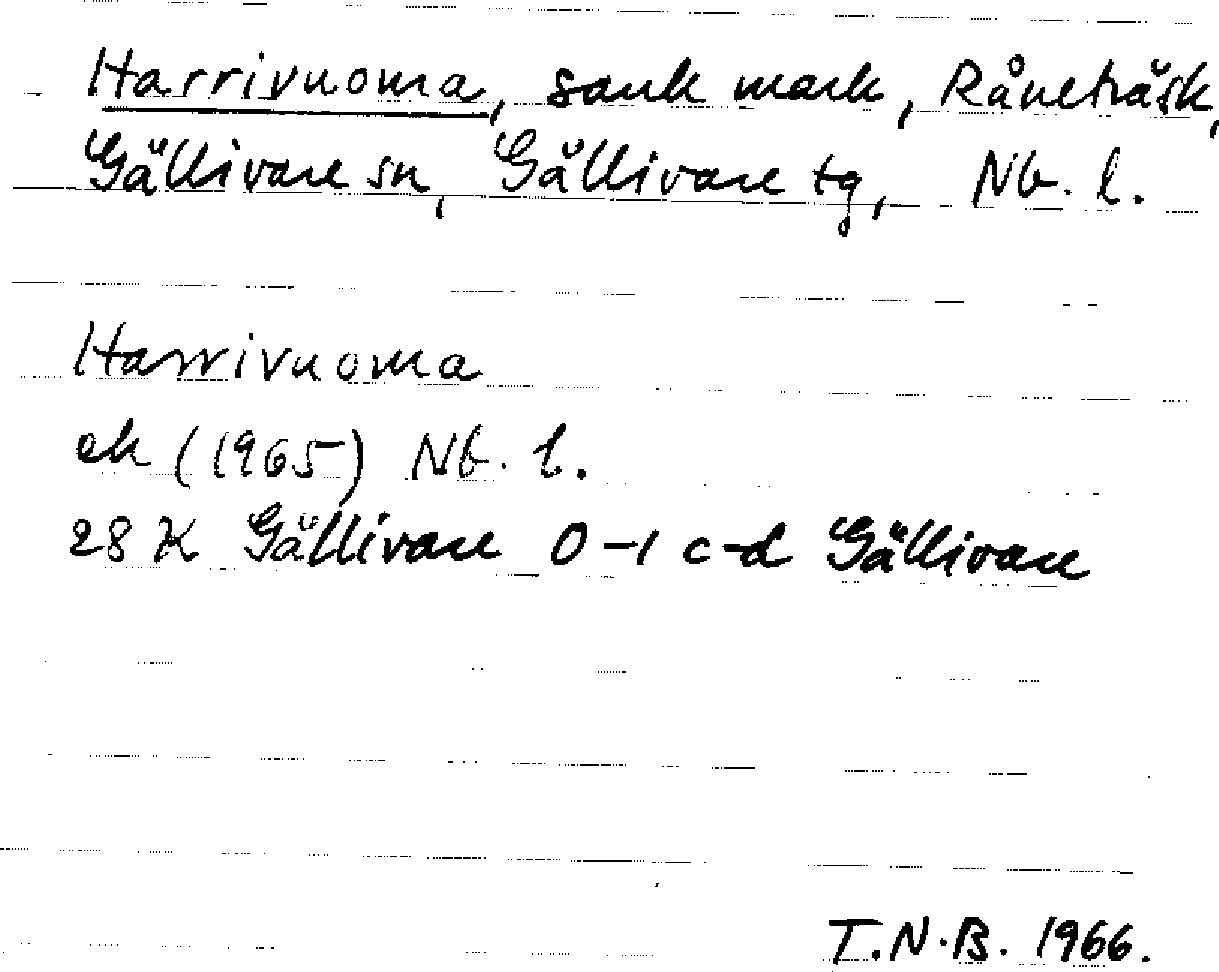 Harrivuoma, sank mark, Råneträsk,
Gällivare sn, Gällivare tg, Nb. l.
Harrivuoma
ek (1965) Nb. l.
28 K Gällivare 0-1 c-d Gällivare
T.N.B. 1966.